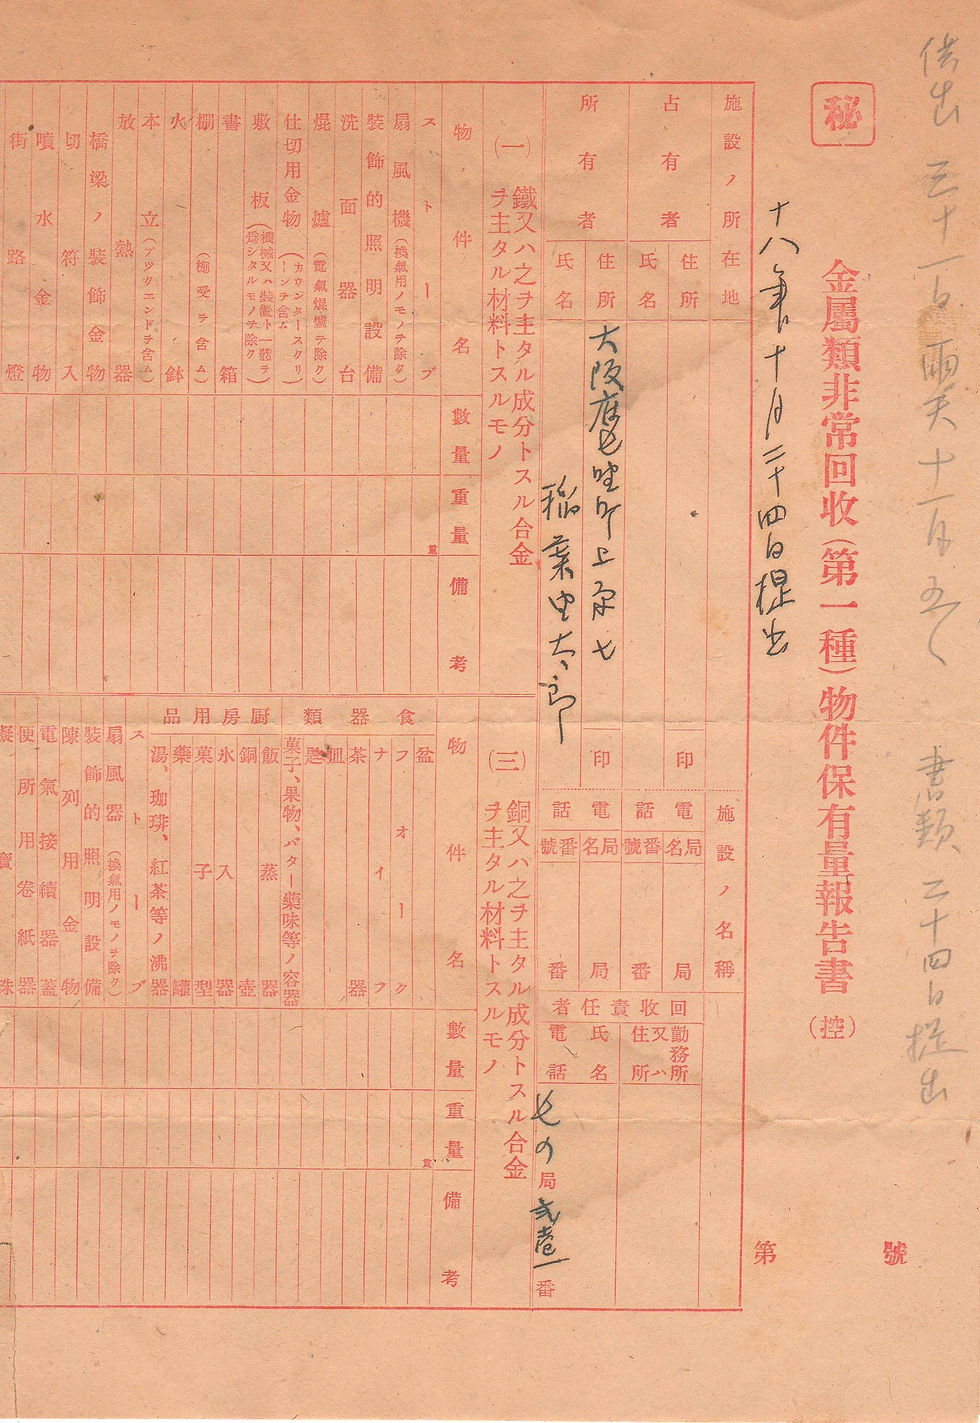 供出 三十一日 雨天 十一月五 書類 二十四日提出
秘
第 號
金屬類非常回收(第一種)物件保有量報告書(控)
十八年十月二十四日提出
施設ノ所在地
施設ノ名稱
占有者
住所
氏名
印
電話
局名
番號
局
番
所有者
住所
大阪
上
七
氏名
稲葉
太郎
印
電話
局名
番號
局
番
回收責任者
勤務所又ハ住所
氏名
電話
局
番
(一)鐵又ハ之ヲ主タル成分トスル合金ヲ主タル材料トスルモノ
物件名
數量
重量
貫
備考
ストーブ
扇風機(換氣用ノモノヲ除ク)
裝飾的照明設備
洗面器台
焜爐(電氣焜爐ヲ除ク)
仕切用金物(カウンタースクリーンヲ含ム)
敷板(機械又ハ裝置ト一體ヲ爲シタルモノヲ除ク)
書箱
棚(棚受ヲ含ム)
火鉢
本立(ブツクエンドヲ含ム)
放熱器
橋梁ノ裝飾金物
切符入
噴水金物
街路燈
(三)銅又ハ之ヲ主タル成分トスル合金ヲ主タル材料トスルモノ
物件名
數量
重量
貫
備考
食器類
盆
フオーク
ナイフ
茶器
皿
匙
菓子、果物、バター藥味等ノ容器
厨房用品
飯蒸器
銅壺
氷入器
菓子型
藥罐
湯、珈琲、紅茶等ノ沸器
ストーブ
扇風器(換氣用ノモノヲ除ク)
裝飾的照明設備
陳列用金物
電氣接續器蓋
便所用卷紙器